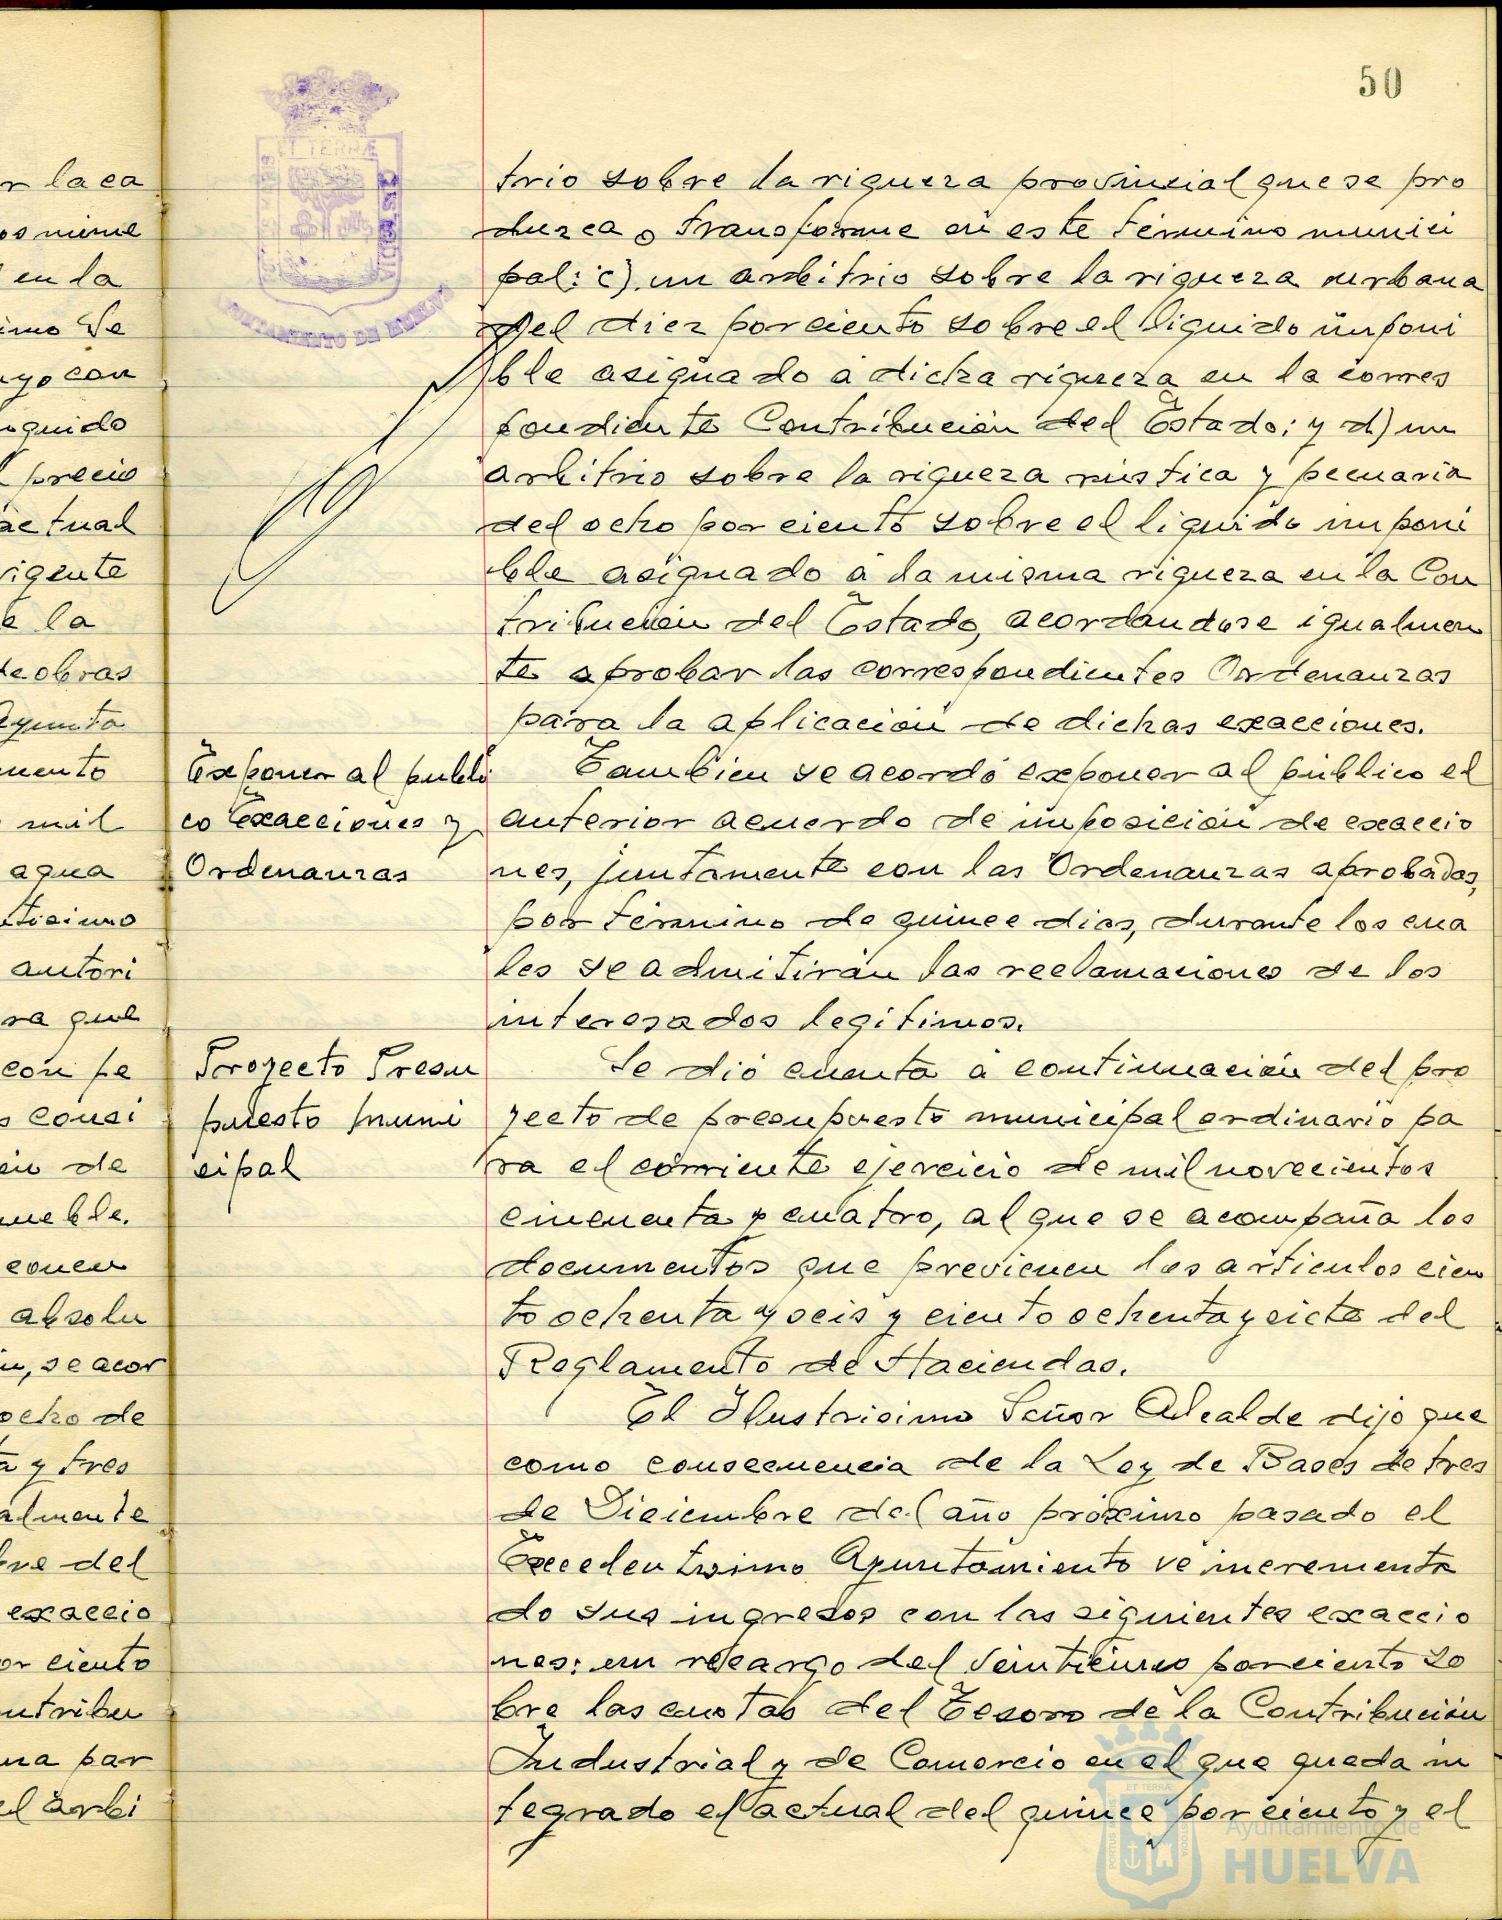 50
r la ca
os nime
en la
imo Se
uyo con
quido
precio
actual
vigente
e la
de obras
Ayunta
mento
mil
agua
ticimo
autori
ra que
con pe
s consi
en de
mueble.
concu
absolu
in, se acor
ocho de
ta y tres
almente
bre del
exaccio
or ciento
ontribu
una par
el arbi
ET TERRÆ
AYUNTAMIENTO DE HUELVA
trio sobre la riqueza provincial que se pro
duzca o transforme en este término munici
pal: c) un arbitrio sobre la riqueza urbana
del diez por ciento sobre el líquido imponi
ble asignado a dicha riqueza en la corres
pondiente Contribución del Estado; y d) un
arbitrio sobre la riqueza rústica y pecuaria
del ocho por ciento sobre el líquido imponi
ble asignado a la misma riqueza en la Con
tribución del Estado, acordandose igualmen
te aprobar las correspondientes Ordenanzas
para la aplicación de dichas exacciones.
Exponer al públi
co Exacciones y
Ordenanzas
Tambien se acordó exponer al público el
anterior acuerdo de imposición de exaccio
nes, juntamente con las Ordenanzas aprobadas,
por término de quince dias, durante los cua
les se admitirán las reclamaciones de los
interesados legítimos.
Proyecto Presu
puesto muni
cipal
Se dió cuenta a continuación del pro
yecto de presupuesto municipal ordinario pa
ra el corriente ejercicio de mil novecientos
cincuenta y cuatro, al que se acompaña los
documentos que previenen los artículos cien
to ochenta y seis y ciento ochenta y siete del
Reglamento de Haciendas.
El Ilustrisimo Señor Alcalde dijo que
como consecuencia de la Ley de Bases de tres
de Diciembre del año próximo pasado el
Excelentisimo Ayuntamiento ve incrementa
do sus ingresos con las siguientes exaccio
nes: un recargo del veinticinco por ciento so
bre las cuotas del Tesoro de la Contribución
Industrial y de Comercio en el que queda in
tegrado el actual del quince por ciento y el
Ayuntamiento de
HUELVA